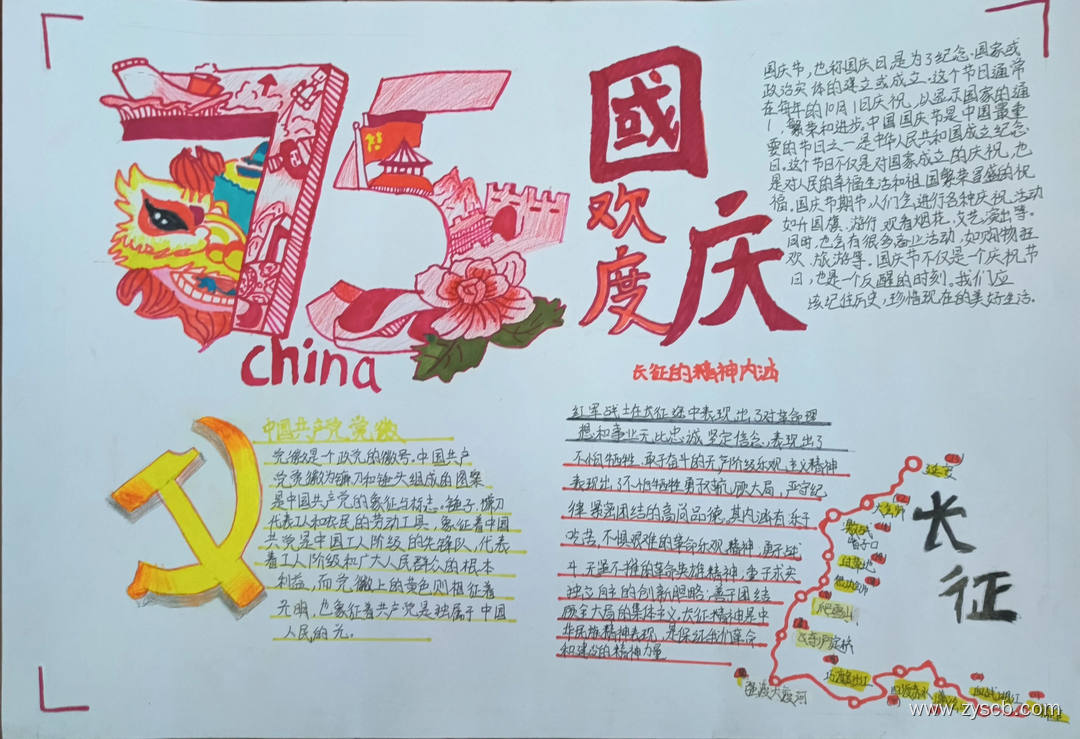 75
china
國
欢
度
庆
国庆节，也称国庆日，是为了纪念国家或
政治实体的建立或成立。这个节日通常
在每年的10月1日庆祝，以显示国家的
，繁荣和进步。中国国庆节是中国最重
要的节日之一是中华人民共和国成立纪念
日。这个节日不仅是对国家成立的庆祝，也
是对人民的幸福生活和祖国繁荣富强的祝
福。国庆节期节人们会进行各种庆祝活动
如升国旗、游行、观看烟花、文艺演出等。
同时，也会有很多商业活动，如购物狂
欢、旅游等。国庆节不仅是一个庆祝节
日，也是一个反醒的时刻。我们应
该记住历史，珍惜现在的美好生活。
中国共产党党徽
党徽是个政党的徽号。中国共产
党党徽为镰刀和锤头组成的图案
是中国共产党的象征与标志。锤子、镰刀
代表工人和农民的劳动工具，象征着中国
共党是中国工人阶级的先锋队，代表
着工人阶级和广大人民群众的根本
利益，而党徽上的黄色则相征着
光明，也象征着共产党是独属于中国
人民的光。
长征的精神内涵
红军战士在长征途中表现出了对革命理
想和事业无比忠诚坚定信念，表现出了
不怕牺牲、敢于奋斗的无产阶级乐观主义精神
表现出了不怕牺牲勇，顾大局，严守纪
律紧密团结的高尚品德。其内涵有乐于
吃苦，不惧艰难的革命乐观精神，勇于战
斗无坚不摧的革命英雄精神，重于求实
独立自主的创新胆略；善于团结
顾全大局的集体主义。长征精神是中
华民族精神表现，是保证我们革命
和建设的精神力量
长
征
延安
激战
腊子口
过草地
爬雪山
飞夺泸定桥
强渡大渡河
巧渡金沙江
四渡赤水
血战湘江
www.zyscb.com